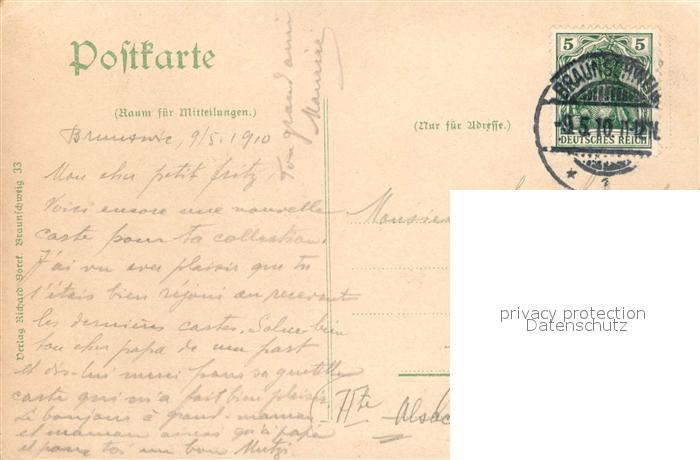 Postkarte
(Raum für Mitteilungen.)
(Nur für Adresse.)
5 5
DEUTSCHES REICH
BRAUNSCHWEIG
9.5.10. 11-12V.
Ton grand ami
Maurice
Brunswic, 9/5.1910
Mon cher petit Fritz,
Voici encore une nouvelle
carte pour ta collection.
J'ai vu avec plaisir que tu
t'étais bien réjoui en recevant
les dernières cartes. Salue bien
ton cher papa de ma part
et dis-lui merci pour sa gentille
carte qui m'a fait bien plaisir.
Le bonjour à grand-maman
et maman ainsi qu'à papa
et pour toi un bon Mutzi
Monsieu
Hte Alsac
Verlag Richard Borek. Braunschweig 33
privacy protection
Datenschutz